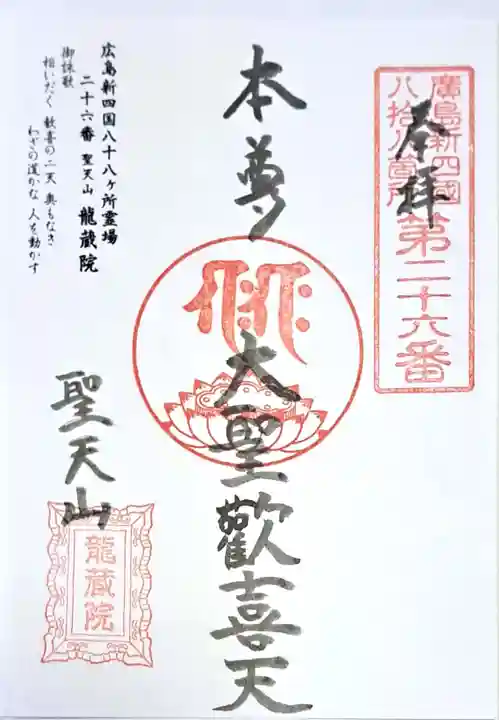 廣島新四國
八拾八箇所
第二十六番
奉拝
本尊
大聖歓喜天
広島新四国八十八ヶ所霊場
二十六番 聖天山 龍蔵院
御詠歌
相いだく 歓喜の二天 奥もなき
わざの道かな 人を動かす
聖天山
龍蔵院